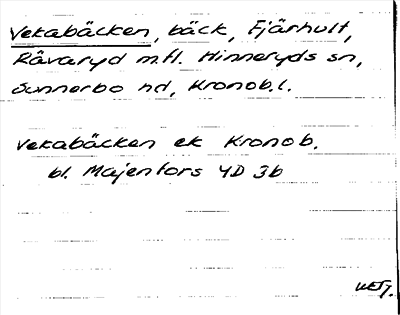 Vekabäcken, bäck, Fjärhult,
Råvaryd m.fl. Hinneryds sn,
Sunnerbo hd, Kronob.l.
Vekabäcken ek Kronob.
bl. Majenfors 4D 3b